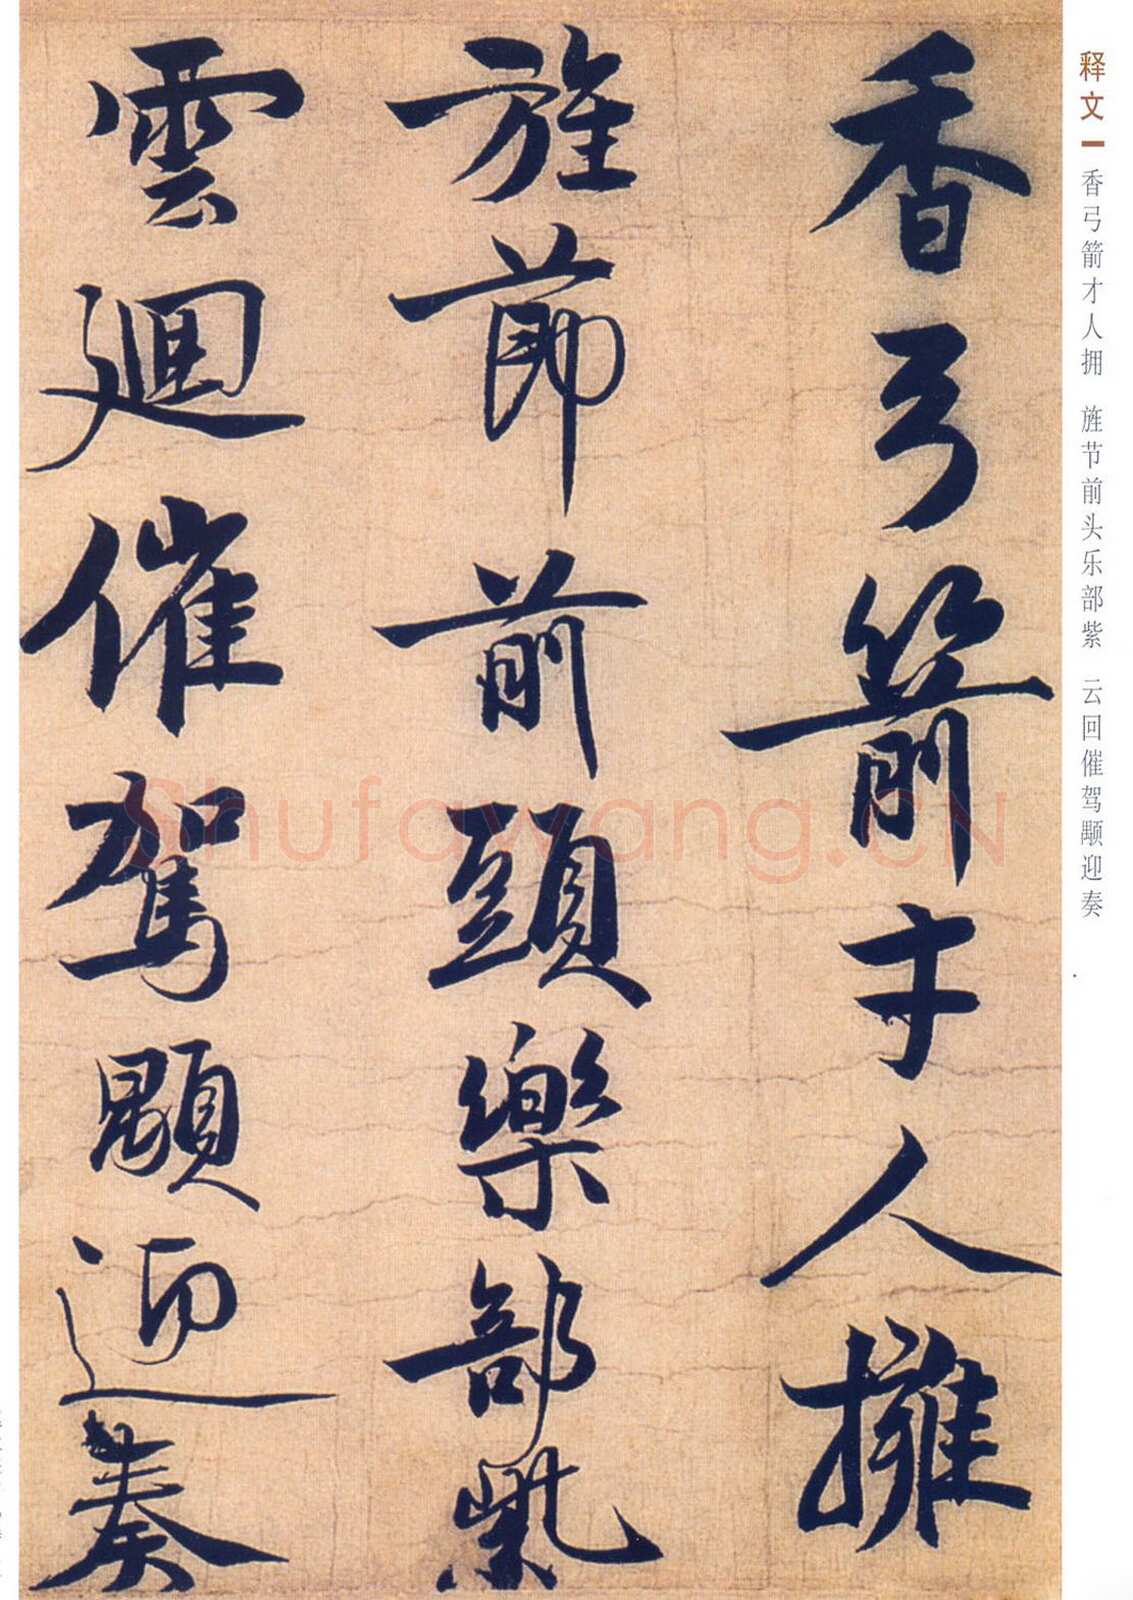 香弓箭才人擁
旌節前頭樂部紫
雲迴催駕顒迎奏
释文 香弓箭才人拥 旌节前头乐部紫 云回催驾颙迎奏
Shufawang.CN